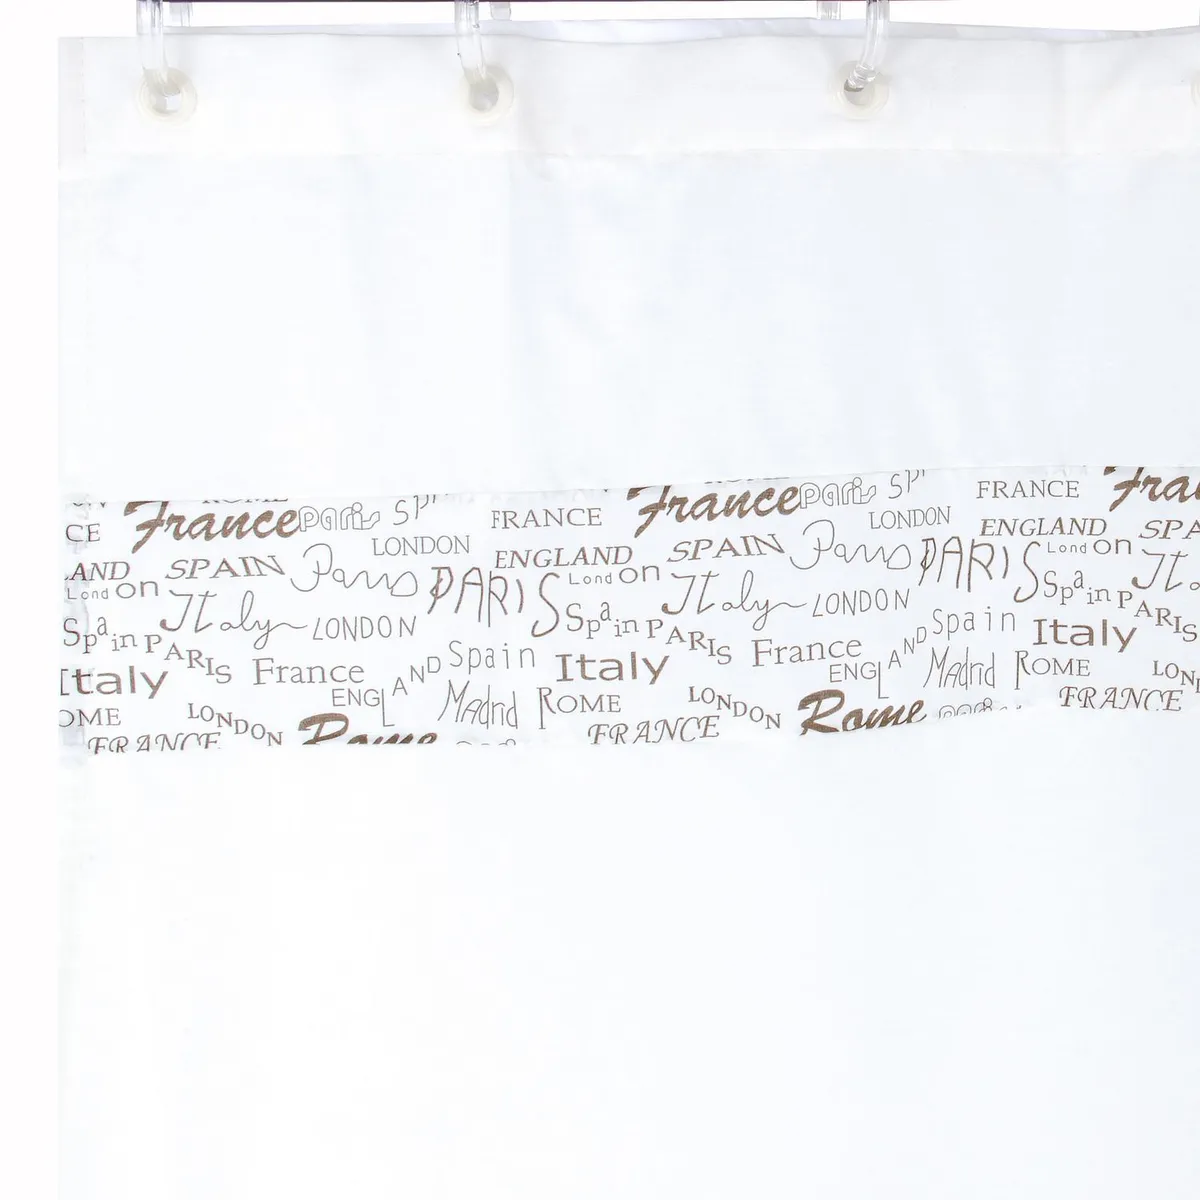 France paris SP France paris SP FRANCE Fra
CE FRANCE LONDON ENGLAND SPA
LONDON SPAIN Paris PARIS London
AND SPAIN Paris ENGLAND London Italy
London Italy PARIS Spain LONDON Spain PARIS
Spain PARIS LONDON Spain PARIS France Spain Italy
Italy France Spain Italy ENGLAND Madrid ROME LON
OME LONDON ENGLAND Madrid ROME LONDON Rome FRANCE
FRANCE Rome FRANCE